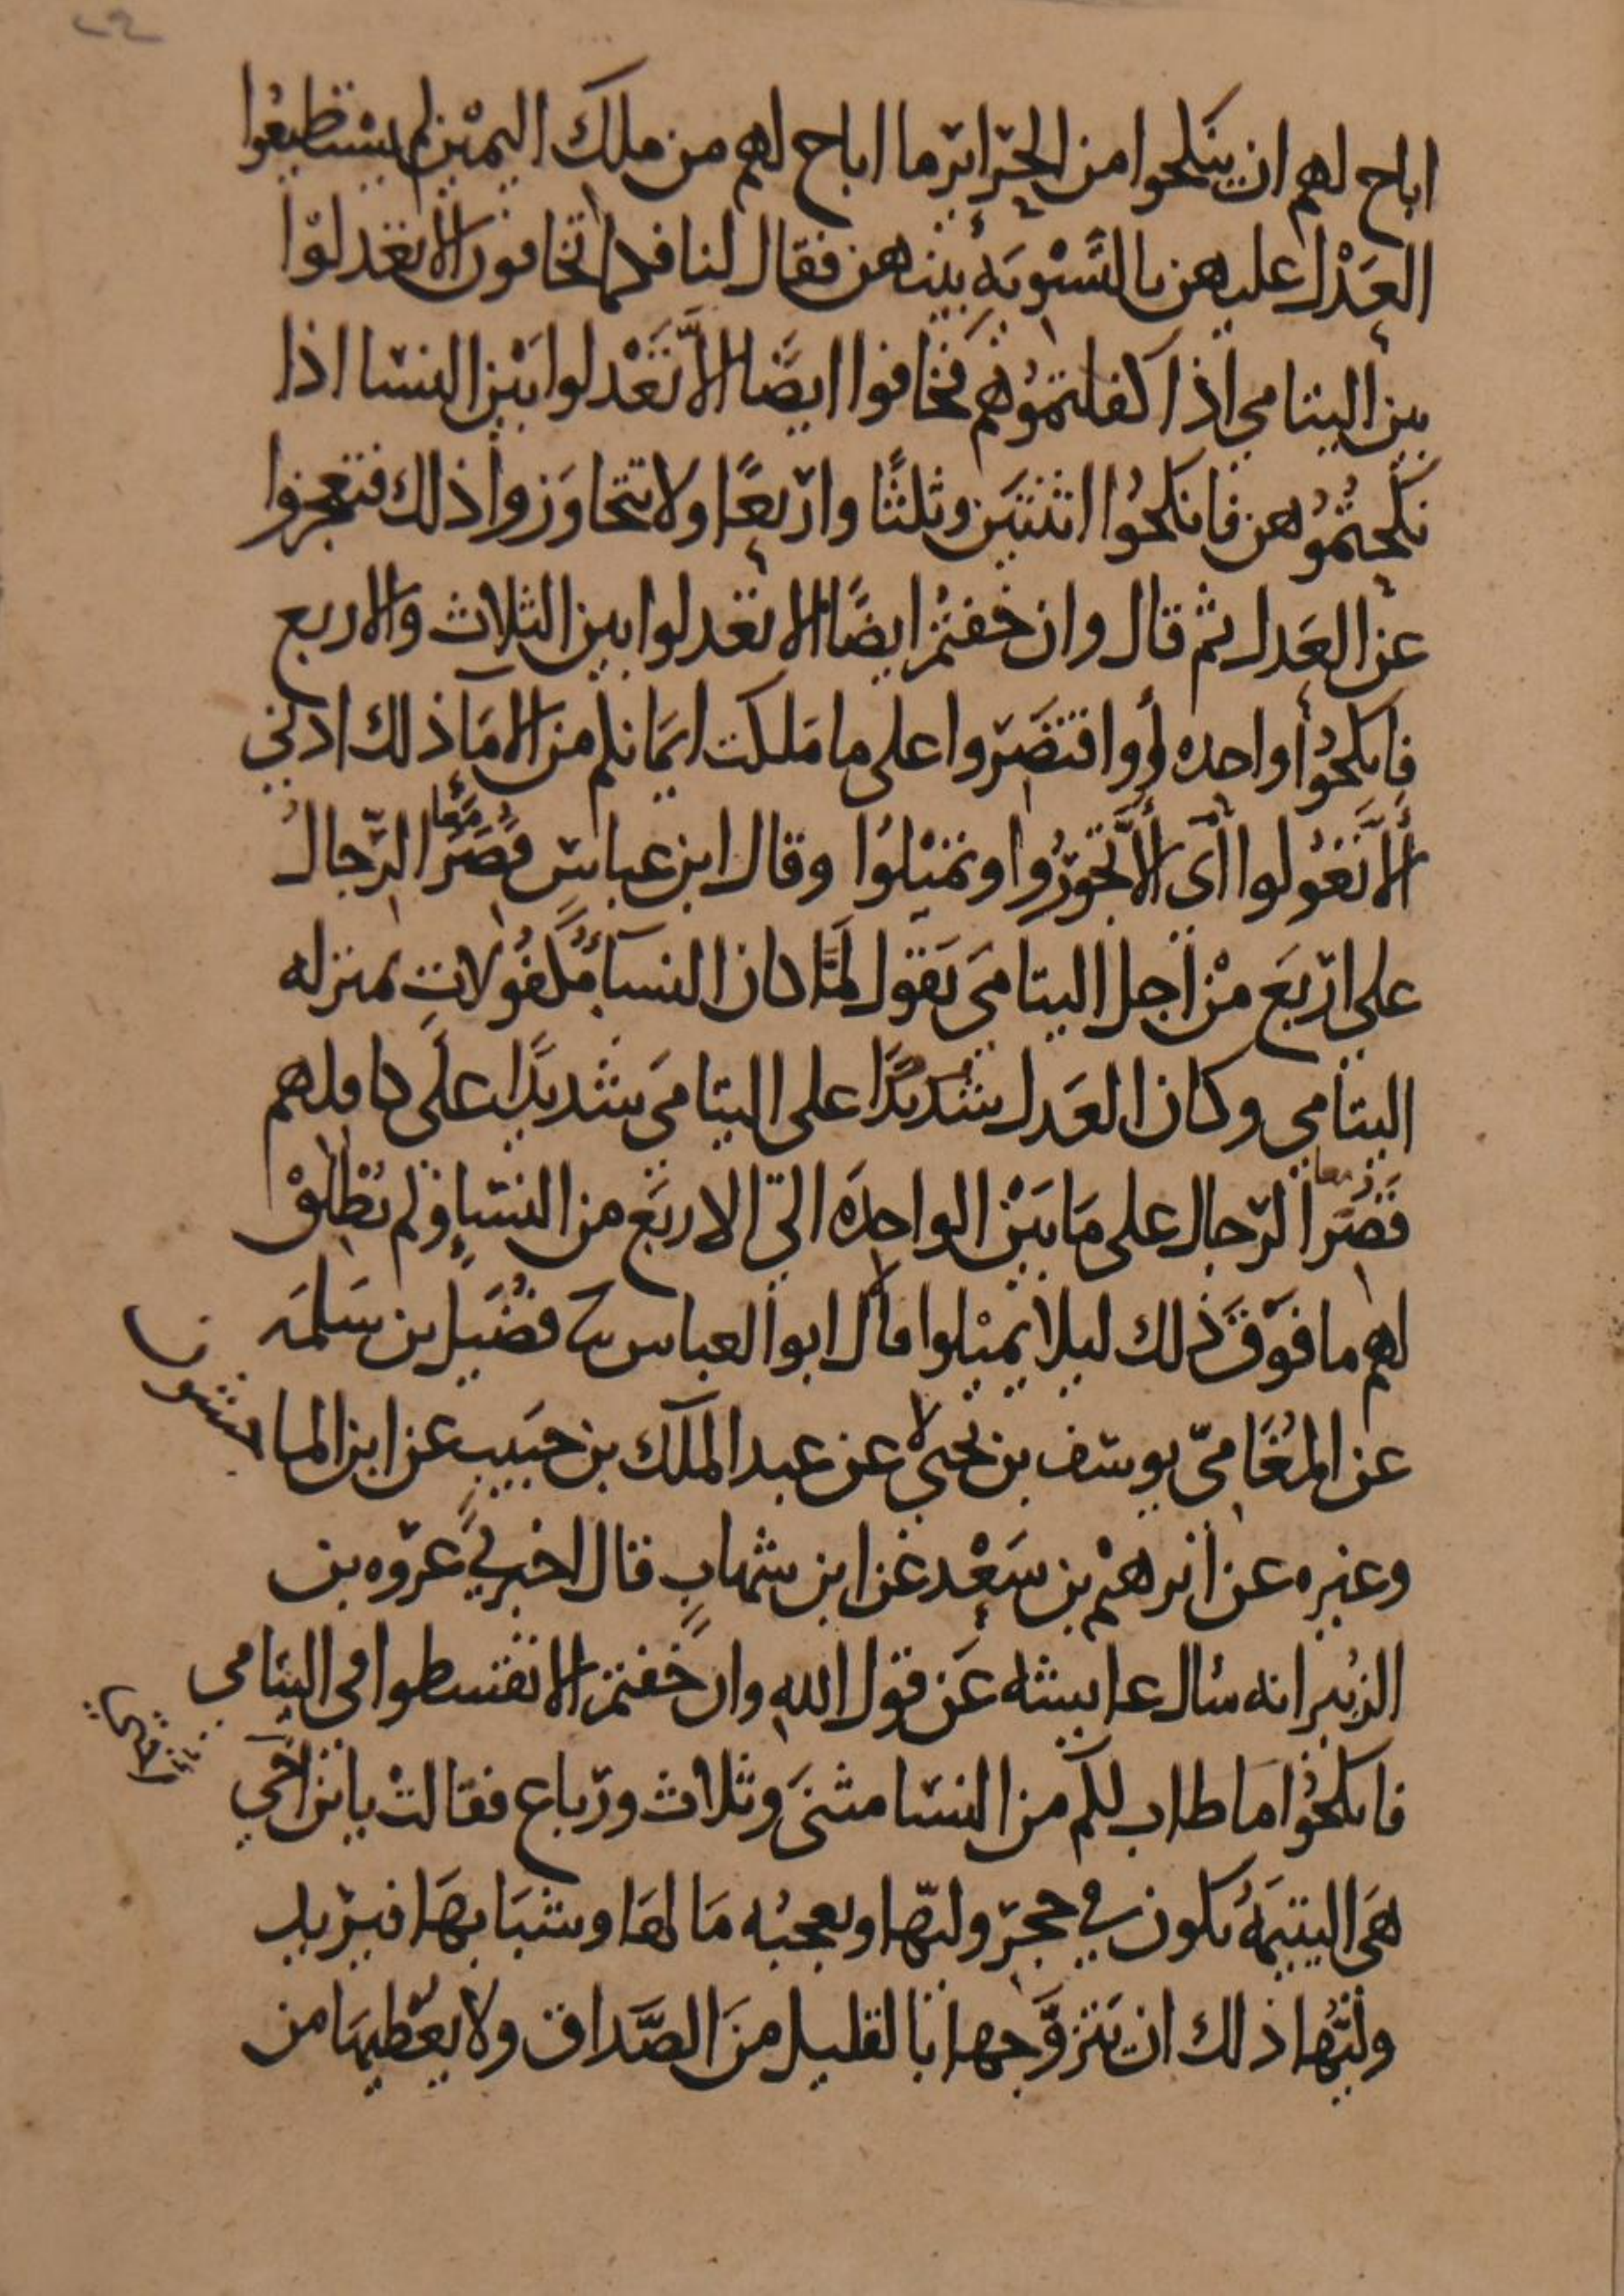 اباح لهم ان ينكحوا من الحرائر ما اباح لهم من ملك اليمين لم يستطيعوا
العَدْل عليهن بالتَّسْوِيَةِ بينهن فقال لنا فكما تخافون الا تعدلوا
بين اليتامى اذا كفلتموُهم فخافوا ايضًا الاَّ تَعْدلوا بَيْن النسا اذا
نكحتمُوُهن فانكحُوا اثنتَين وثلثًا واربعًا ولا تتجاوَزوا ذلك فتعجزوا
عن العَدل ثم قال وان خفتمُ ايضًا الا تعدلوا بين الثلاث والاربع
فانكحُوا واحده أو اقتصَروا على ما مَلكت ايمَانكم من الامَا ذلك ادنى
ألاَّ تَعُولوا أى ألاَّ تجوُروا وتميْلوُا وقال ابن عباسٍ قُصَِرَ الرّجالُ
على اربَعٍ مْن أجل اليتامىَ يَقول لمَّا كان النسآءُ مَكفُولاتٍ بمنزله
اليتامى وكان العَدل شديدًا على اليتامىَ شديدًا علَى كافلهم
قصَُِر الرّجال على مَا بَيْن الواحِدَه الى الاربَع من النسَاءِ ولم يُطْلِقْ
لهم ما فَوْقَ ذلك ليلا يميْلوا قال ابوا العباس نا فضُيَل بن سَلمَه
عن المُغَامىّ يوسف بن يحيى عن عبد الملك بن حَبَيبٍ عن ابن الماجشون
وغيره عن ابرهيْم بن سَعْد عن ابن شهابٍ قال اخبرنى عروه بن
الزبُير انه سال عايشه عَن قول اللهِ وان خفتم الا تقسطوا فى اليتامى
فانكحُوا مَا طاب لكم من النسا مثنىَ وثلاث ورباع فقالتْ يابن اخىَ
هَى اليتيمَهُ تكون فى حجرَ وليّها ويعجبُه مَالهَا وشبَابهَا فيريد
وليُّها ذلك ان يَتزوَّجها بالقليل منَ الصَّداق ولا يعْطيهَا من